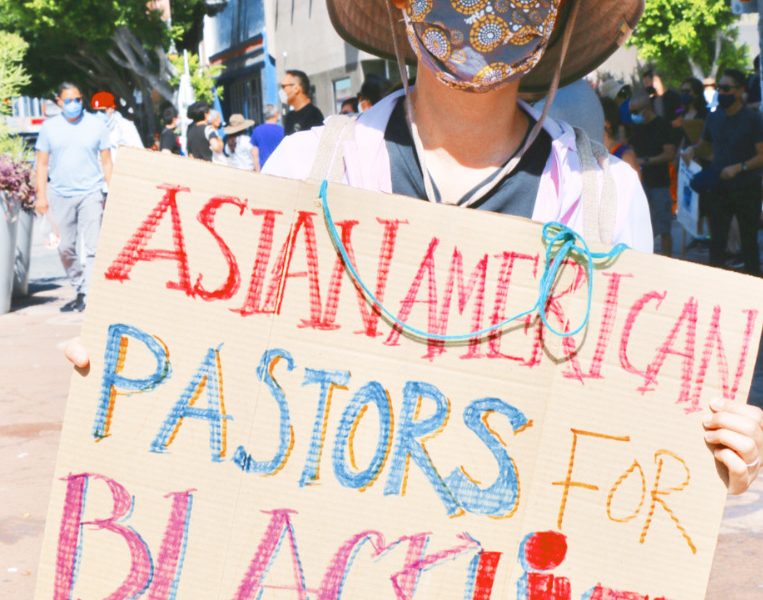 ASIAN AMERICAN
PASTORS FOR
BLACK